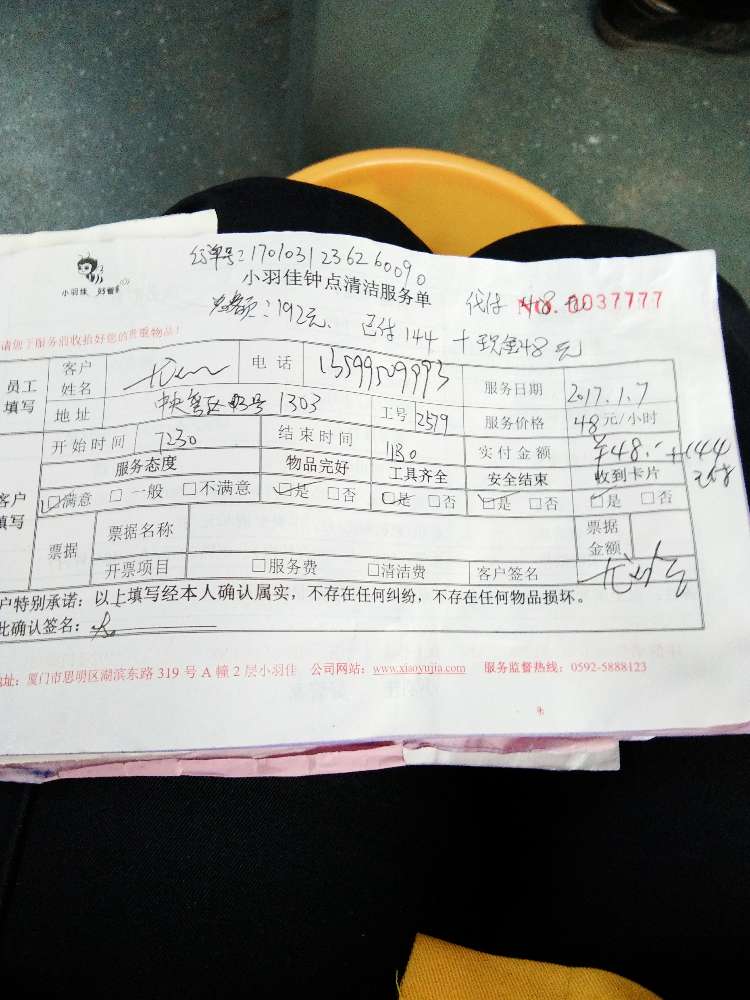 订单号:170103123626 0090
小羽佳 好管家
小羽佳钟点清洁服务单
NO. 0037777
总额:192元. 已付144 + 现金48元
代付 48元
请您于服务前收拾好您的贵重物品!
员工填写 客户姓名 电话 13599509993 服务日期 2017.1.7
地址 1303 工号 2579 服务价格 48元/小时
开始时间 7230 结束时间 1130 实付金额 ¥48. +144
客户填写 服务态度 物品完好 工具齐全 安全结束 收到卡片
□满意 □一般 □不满意 □是 □否 □是 □否 □是 □否 □是 □否
票据 票据名称 票据金额
开票项目 □服务费 □清洁费 客户签名
户特别承诺:以上填写经本人确认属实,不存在任何纠纷,不存在任何物品损坏。
此确认签名:
地址:厦门市思明区湖滨东路 319 号 A 幢 2 层小羽佳 公司网站:www.xiaoyujia.com 服务监督热线:0592-5888123